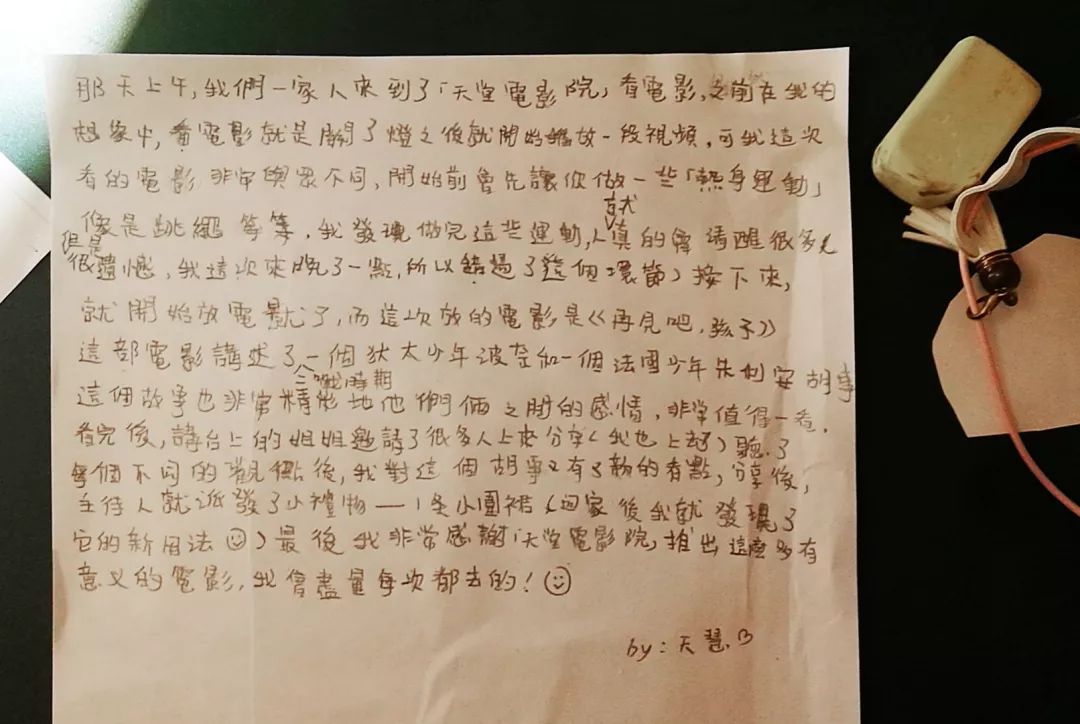 那天上午,我們一家人來到了「天堂電影院」看電影,之前在我的
想象中,看電影就是關了燈之後就開始播放一段視頻,可我這次
看的電影非常與眾不同,開始前會先讓你做一些「熱身運動」
像是跳繩等等,我發現做完這些運動,人就真的會清醒很多(
但是很遺憾,我這次來晚了一點,所以錯過了這個環節)接下來,
就開始放電影了,而這次放的電影是《再見吧,孩子》
這部電影講述了二戰時期一個猶太少年波奈和一個法國少年朱利安胡事
這個故事也非常精彩地他們俩之間的感情,非常值得一看,
看完後,講台上的姐姐邀請了很多人上來分享(我也上去了)聽了
每個不同的觀點後,我對這個胡事又有了新的看點,分享後,
主持人就派發了小禮物——1条小圍裙(回家後我就發現了
它的新用法☺)最後我非常感謝「天堂電影院」推出這麼多有
意义的電影,我會盡量每次都去的!☺
by:天慧